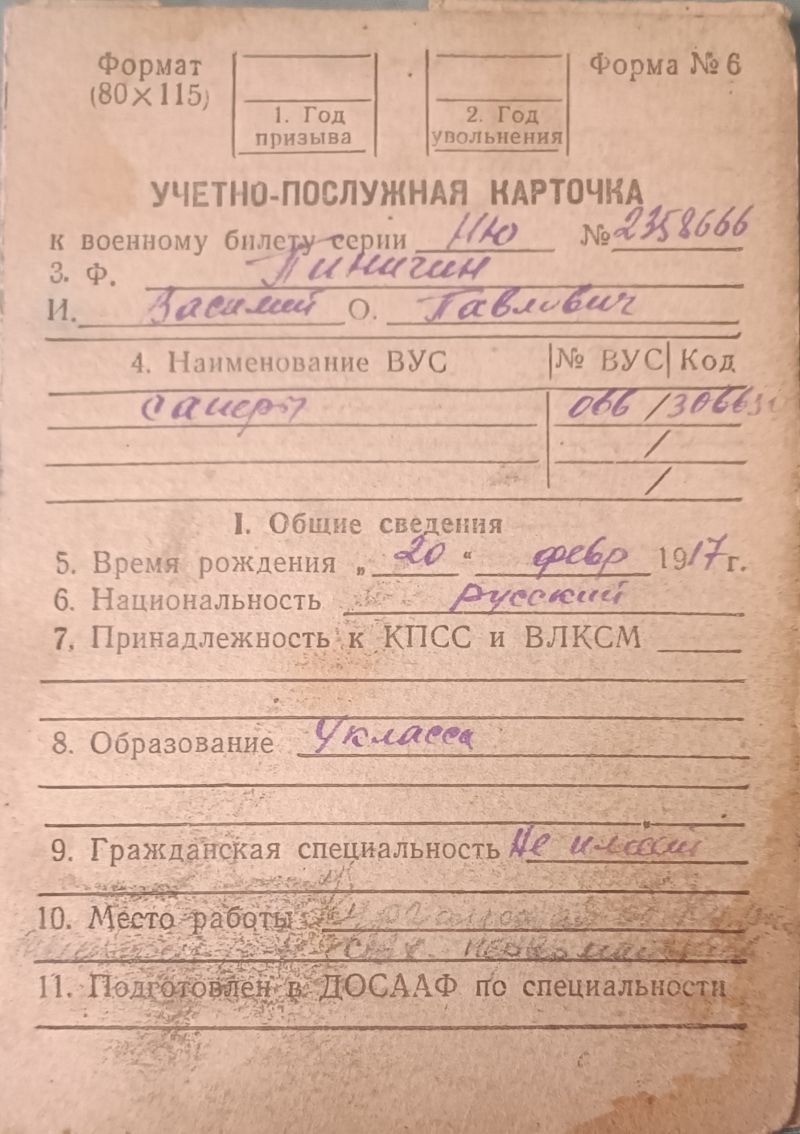 Формат
(80×115)
Форма № 6
1. Год призыва
2. Год увольнения
УЧЕТНО-ПОСЛУЖНАЯ КАРТОЧКА
к военному билету серии НЮ № 2358666
3. Ф. Пиничин
И. Василий О. Павлович
4. Наименование ВУС | № ВУС | Код
саперы 066 /306636
/
/
I. Общие сведения
5. Время рождения „20“ февр 1917 г.
6. Национальность русский
7. Принадлежность к КПСС и ВЛКСМ
8. Образование 4 класса
9. Гражданская специальность Не имеет
10. Место работы
11. Подготовлен в ДОСААФ по специальности